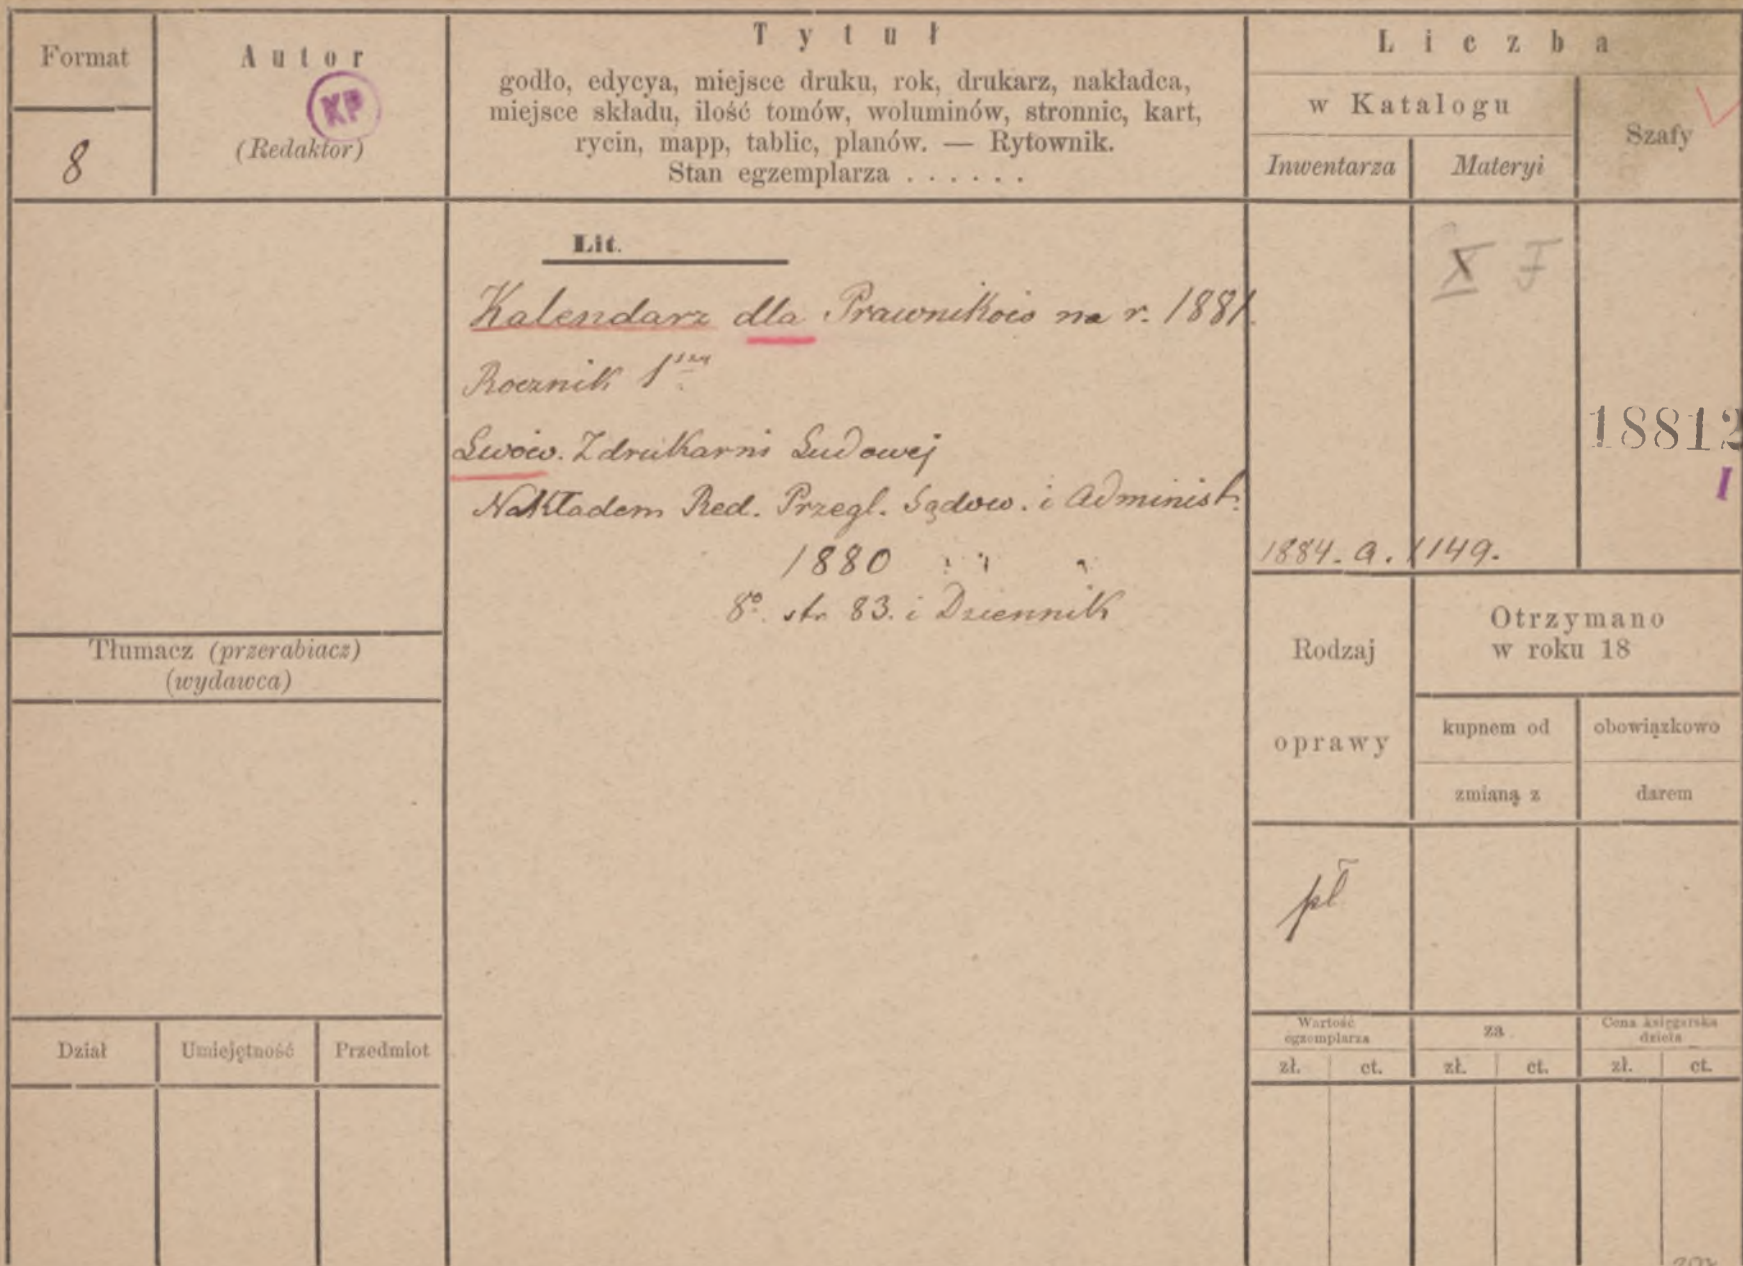 Format
8
Autor
KP
(Redaktor)
Tytuł
godło, edycya, miejsce druku, rok, drukarz, nakładca,
miejsce składu, ilość tomów, woluminów, stronnic, kart,
rycin, mapp, tablic, planów. — Rytownik.
Stan egzemplarza . . . . . .
Liczba
w Katalogu
Szafy
Inwentarza
Materyi
Lit.
Kalendarz dla Prawników na r. 1881.
Rocznik 1szy
Lwów. Z drukarni Ludowej
Nakładem Red. Przegl. Sądow. i Administ.
1880
8º. str. 83. i Dziennik
X F
18812
I
1884. a. 1149.
Tłumacz (przerabiacz)
(wydawca)
Rodzaj
oprawy
Otrzymano
w roku 18
kupnem od
obowiązkowo
zmianą z
darem
pł
Dział
Umiejętność
Przedmiot
Wartość
egzemplarza
za
Cena księgarska
dzieła
zł.
ct.
zł.
ct.
zł.
ct.